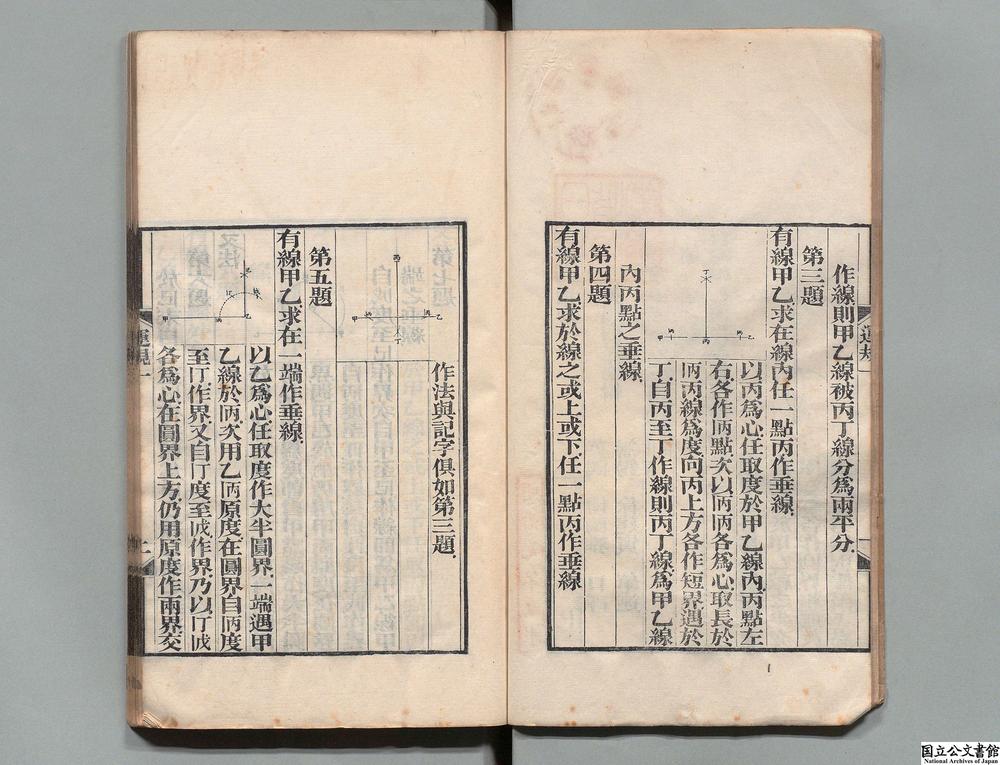 作線則甲乙線被丙丁線分爲兩平分
第三題
有線甲乙求在線内任一點丙作垂線
以丙爲心任取度於甲乙線内丙點左
右各作㪅點次以㪅㪅各爲心取長於
㪅丙線爲度向丙上方各作短界遇於
丁自丙至丁作線則丙丁線爲甲乙線
内丙點之垂線
第四題
有線甲乙求於線之或上或下任一點丙作垂線
作法與記字俱如第三題
第五題
有線甲乙求在一端作垂線
以乙爲心任取度作大半圜界一端遇甲
乙線於㪅次用乙㪅原度在圜界自㪅度
至丁作界又自丁度至戊作界乃以丁戊
各爲心在圜界上方仍用原度作兩界交
運規一
運規一
国立公文書館
National Archives of Japan